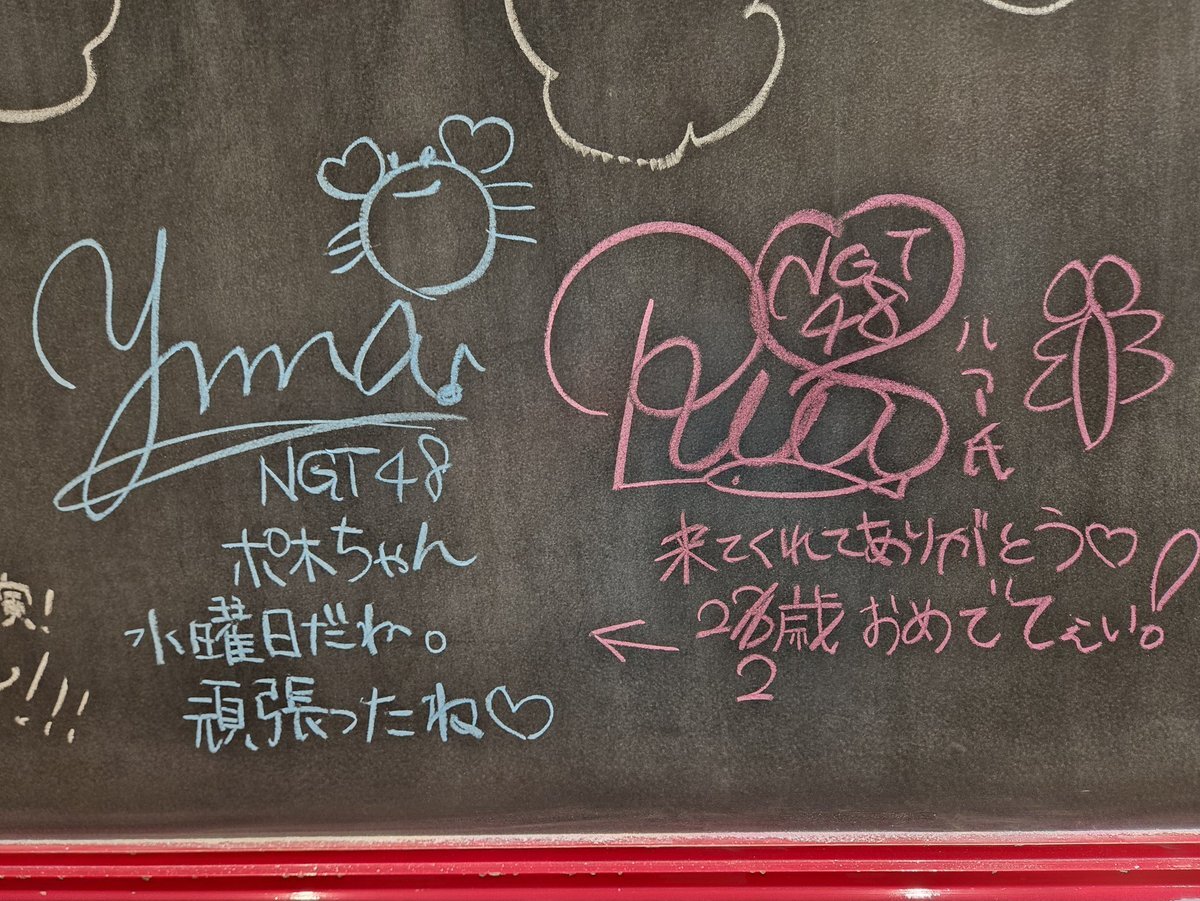 Yuna
NGT48
ポ木ちゃん
水曜日だね。
頑張ったね♡
NGT
48
Rua
ルアー氏
来てくれてありがとう♡
← 2歳おめでてぇい!
2
!
!!!